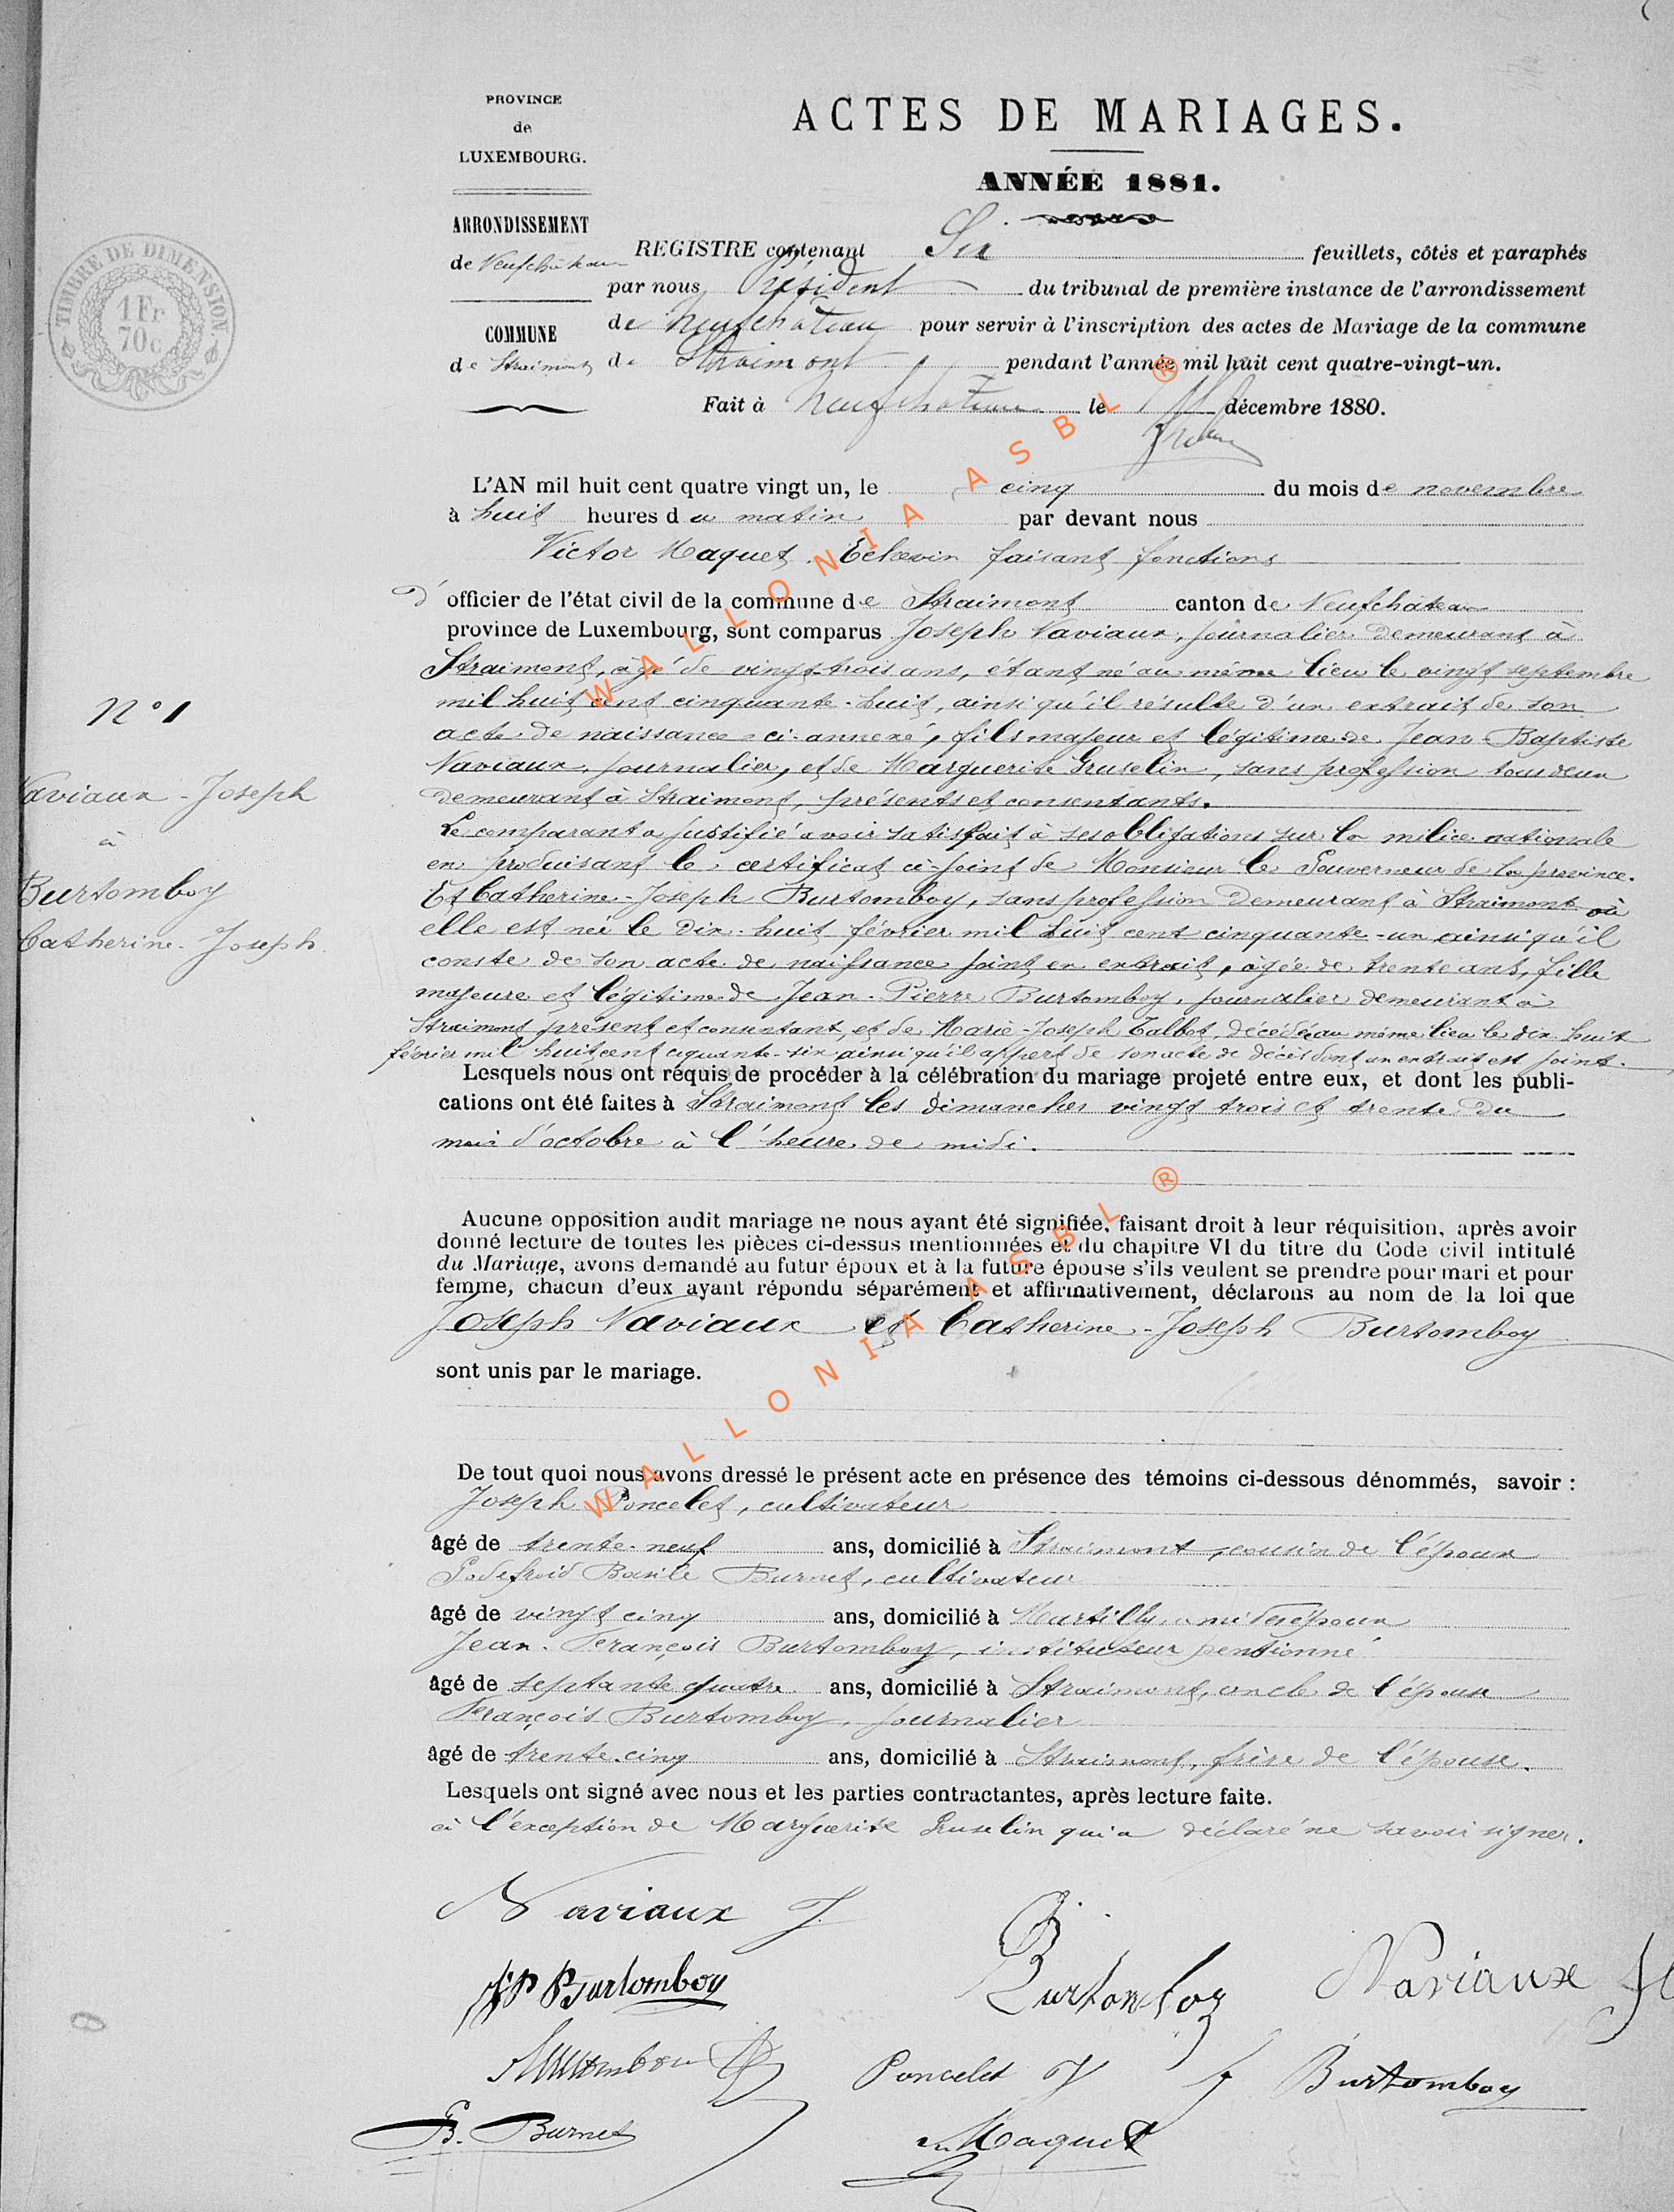 PROVINCE
de
LUXEMBOURG.
ARRONDISSEMENT
de Neufchâteau
COMMUNE
de Straimont
TIMBRE DE DIMENSION
1 Fr
70c
ACTES DE MARIAGES.
ANNÉE 1881.
REGISTRE contenant Six feuillets, côtés et paraphés
par nous Président du tribunal de première instance de l'arrondissement
de Neufchâteau pour servir à l'inscription des actes de Mariage de la commune
de Straimont pendant l'année mil huit cent quatre-vingt-un.
Fait à Neufchâteau le décembre 1880.
L'AN mil huit cent quatre vingt un, le cinq du mois de novembre
à huit heures du matin par devant nous
Victor Maquet Echevin faisant fonctions
d'officier de l'état civil de la commune de Straimont canton de Neufchâteau
province de Luxembourg, sont comparus Joseph Naviaux, journalier demeurant à
Straimont, âgé de vingt-trois ans, étant né au même lieu le vingt septembre
mil huit cent cinquante-huit, ainsi qu'il résulte d'un extrait de son
acte de naissance ci-annexé, fils majeur et légitime de Jean-Baptiste
Naviaux, journalier, et de Marguerite Gruselin, sans profession tous deux
demeurant à Straimont, présents et consentants.
Le comparant a justifié avoir satisfait à ses obligations sur la milice nationale
en produisant le certificat ci-joint de Monsieur le Gouverneur de la province.
Et Catherine-Joseph Burtomboy, sans profession demeurant à Straimont où
elle est née le dix-huit février mil huit cent cinquante-un ainsi qu'il
conste de son acte de naissance joint en extrait, âgée de trente ans, fille
majeure et légitime de Jean-Pierre Burtomboy, journalier demeurant à
Straimont présent et consentant, et de Marie-Joseph Talbot, décédée au même lieu le dix huit
février mil huit cent cinquante-six ainsi qu'il appert de son acte de décès dont un extrait est joint.
Lesquels nous ont requis de procéder à la célébration du mariage projeté entre eux, et dont les publi-
cations ont été faites à Straimont les dimanches vingt trois et trente du
mois d'octobre à l'heure de midi.
N° 1
Naviaux-Joseph
à
Burtomboy
Catherine-Joseph
Aucune opposition audit mariage ne nous ayant été signifiée, faisant droit à leur réquisition, après avoir
donné lecture de toutes les pièces ci-dessus mentionnées et du chapitre VI du titre du Code civil intitulé
du Mariage, avons demandé au futur époux et à la future épouse s'ils veulent se prendre pour mari et pour
femme, chacun d'eux ayant répondu séparément et affirmativement, déclarons au nom de la loi que
Joseph Naviaux et Catherine-Joseph Burtomboy
sont unis par le mariage.
De tout quoi nous avons dressé le présent acte en présence des témoins ci-dessous dénommés, savoir :
Joseph Poncelet, cultivateur
âgé de trente-neuf ans, domicilié à Straimont, cousin de l'époux
Godefroid Basile Burnet, cultivateur
âgé de vingt cinq ans, domicilié à Martilly, ami des époux
Jean-François Burtomboy, instituteur pensionné
âgé de septante quatre ans, domicilié à Straimont, oncle de l'épouse
François Burtomboy, journalier
âgé de trente-cinq ans, domicilié à Straimont, frère de l'épouse.
Lesquels ont signé avec nous et les parties contractantes, après lecture faite.
à l'exception de Marguerite Gruselin qui a déclaré ne savoir signer.
Naviaux J.
JP Burtomboy
Burtomboy
Naviaux
Poncelet J
f Burtomboy
B. Burnet
Maquet
WALLONIA ASBL ®
WALLONIA ASBL ®